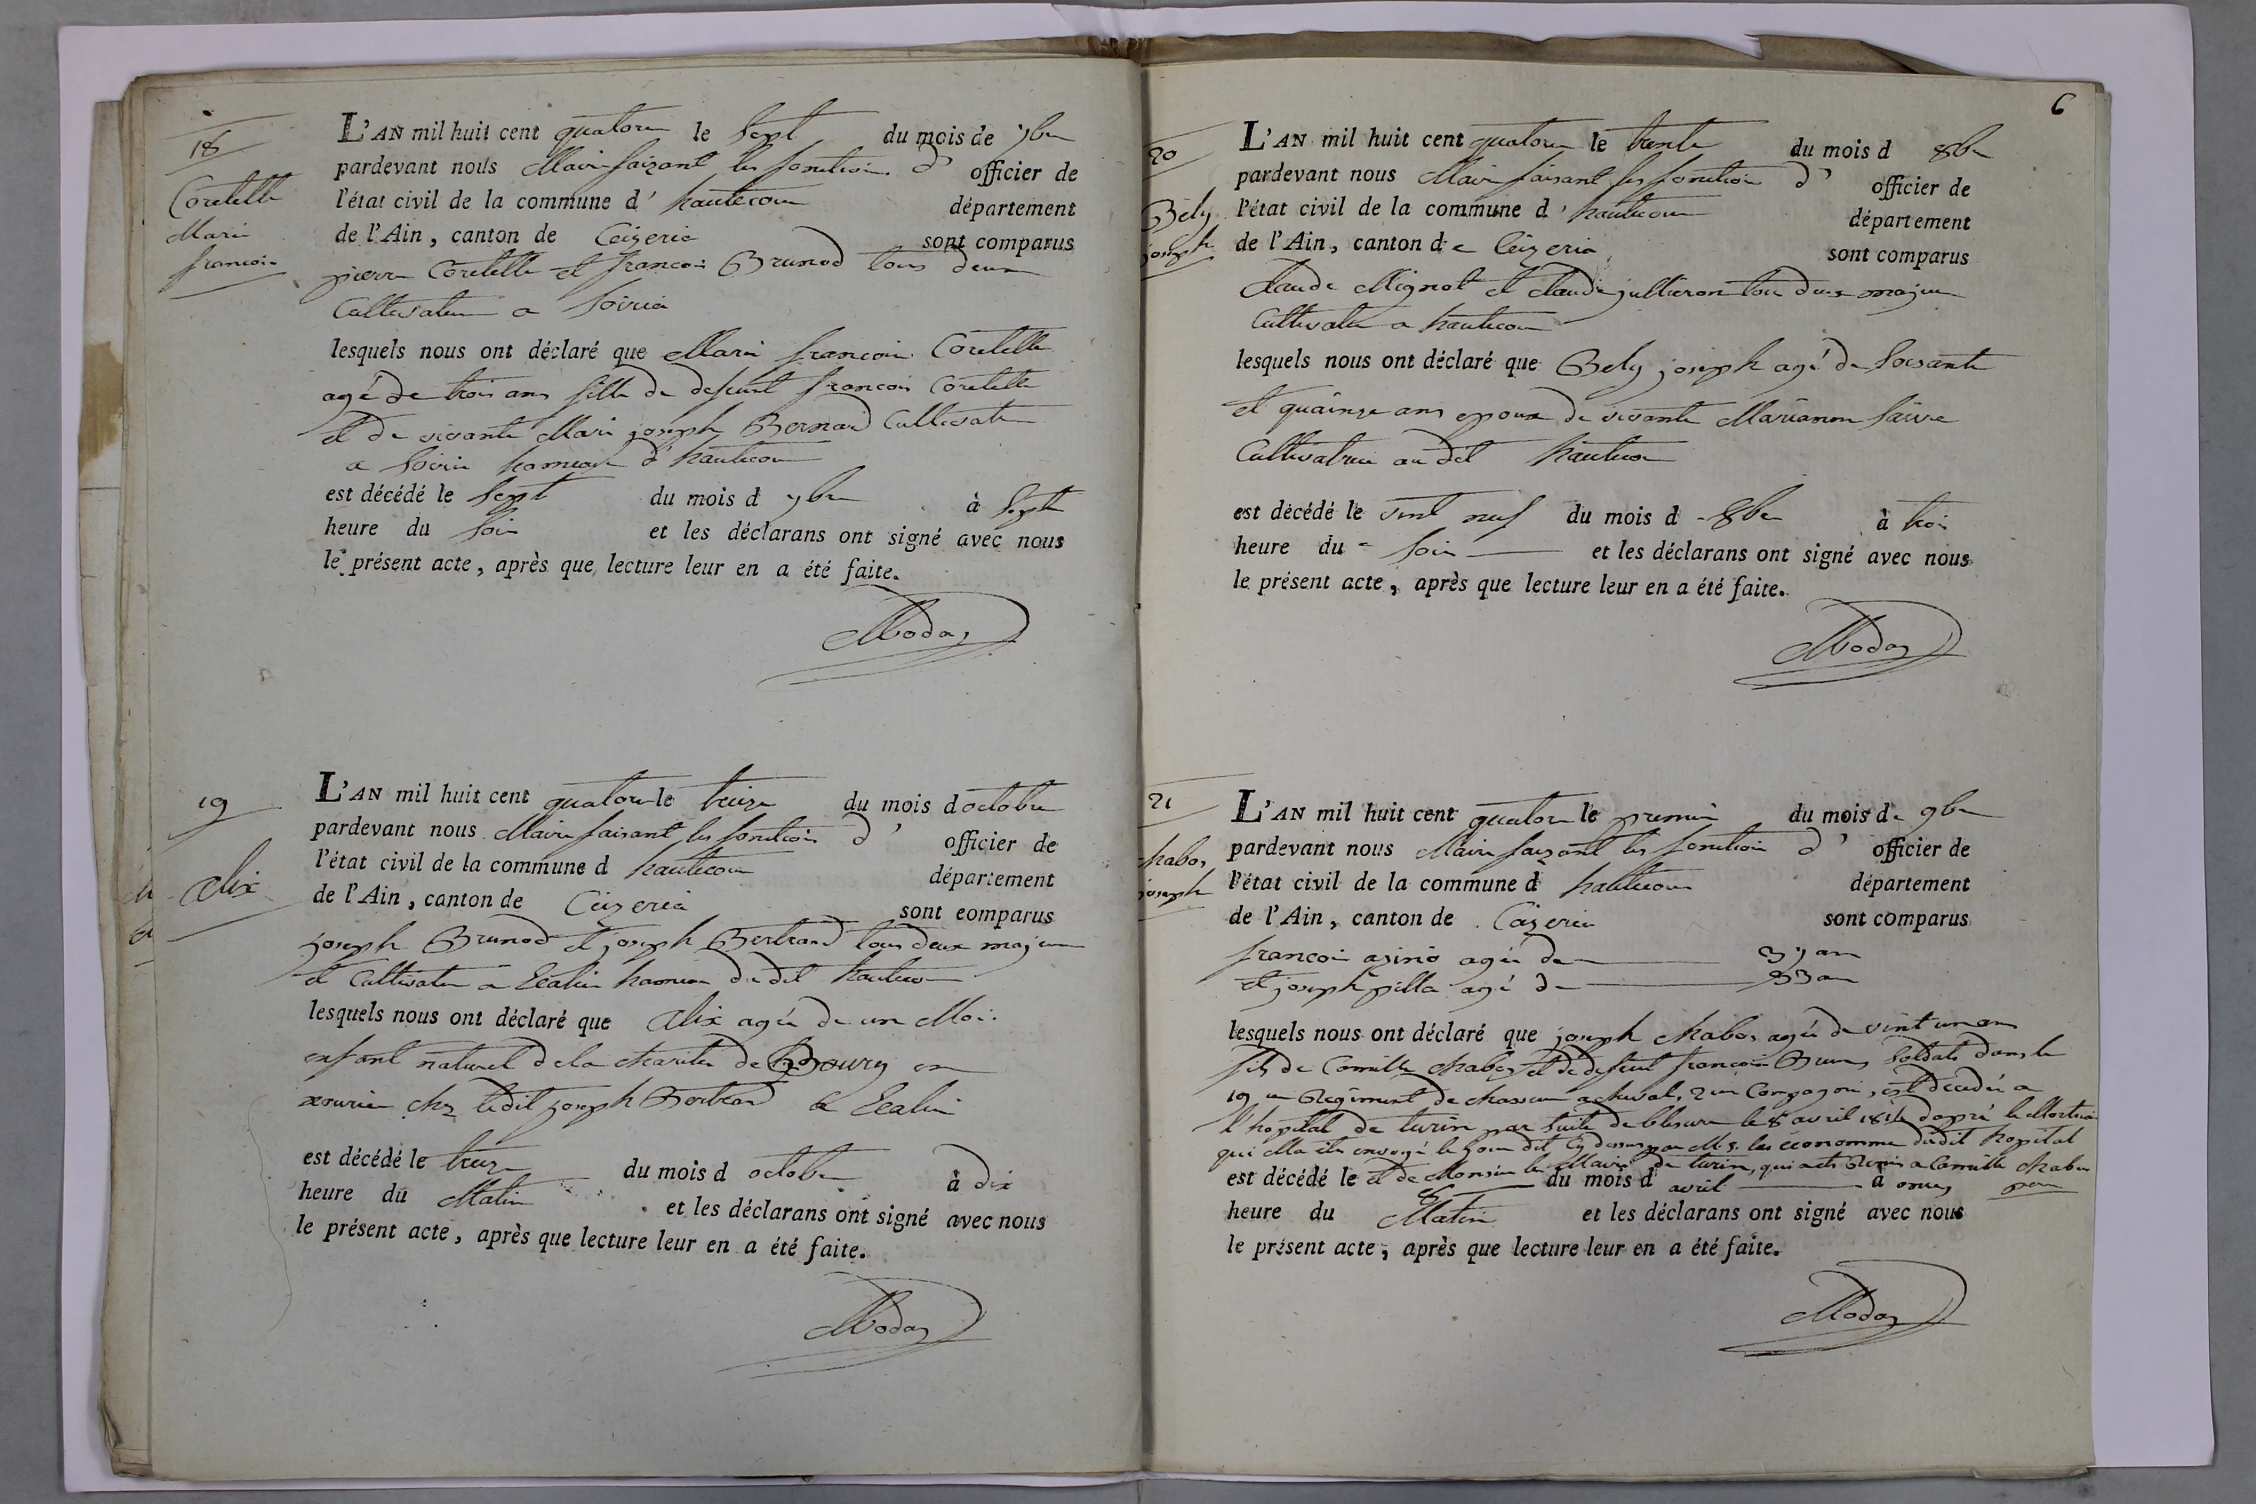 18
Coretelle
Marie
francoise
L'AN mil huit cent quatorze le Sept du mois de 7bre
pardevant nous Maire faisant les fonction d' officier de
l'état civil de la commune d' hautecour département
de l'Ain, canton de Ceizeria sont comparus
pierre Coretelle et francois Brunod tous deux
Cultivateur a Soiria
lesquels nous ont déclaré que Marie francoise Coretelle
agé de trois ans fille de defunt francois Coretelle
et de vivante Marie joseph Bernard Cultivat
a Soiria hameau d' hautecour
est décédé le Sept du mois d 7bre à Sept
heure du Soir et les déclarans ont signé avec nous
le présent acte, après que lecture leur en a été faite.
Moday
19
Alix
L'AN mil huit cent quatorze le treize du mois d octobre
pardevant nous Maire faisant les fonction d' officier de
l'état civil de la commune d hautecour département
de l'Ain, canton de Ceizeria sont comparus
joseph Brunod et joseph Bertrand tous deux majeur
et Cultivateur a hameau du dit hautecour
lesquels nous ont déclaré que Alix agée de un Mois
enfant naturel de la charité de Bourg en
chez ledit joseph Bertrand a
est décédé le treize du mois d octobre à dix
heure du Matin et les déclarans ont signé avec nous
le présent acte, après que lecture leur en a été faite.
Moday
6
20
Bely
joseph
L'AN mil huit cent quatorze le trente du mois d 8bre
pardevant nous Maire faisant les fonction d' officier de
l'état civil de la commune d' hautecour département
de l'Ain, canton de Ceizeria sont comparus
Claude Mignot et Claude jullieron tou deux majeur
Cultivateur a hautecour
lesquels nous ont déclaré que Bely joseph agé de Soisante
et quainze ans epoux de vivante Marianne faivre
Cultivatrice au dit hautecour
est décédé le vint neuf du mois d 8bre à trois
heure du Soir et les déclarans ont signé avec nous
le présent acte, après que lecture leur en a été faite.
Moday
21
chabos
joseph
L'AN mil huit cent quatorze le premier du mois de 9bre
pardevant nous Maire faisant les fonction d' officier de
l'état civil de la commune d hautecour département
de l'Ain, canton de Ceizeria sont comparus
francoi asino agée de 37 an
et joseph pilla agé de 33 an
lesquels nous ont déclaré que joseph chabos agée de vint un ans
fils de Camille chabos et de defunt francoise Brun Soldats dans le
19 em Régiment de chasseur a cheval, 2 em Compagni, est décédée a
l'hopital de turin par Suite de blesure le 8 avril 1814 dapré le Mortuaire
qui Ma été envoyé le jour dit Cy desus par M.s. les économme dudit hopital
et de Monsieur le Maire de turin, qui a été a Camille chabos
est décédé le 8 du mois d' avril à onze pere
heure du Matin et les déclarans ont signé avec nous
le présent acte, après que lecture leur en a été faite.
Moday